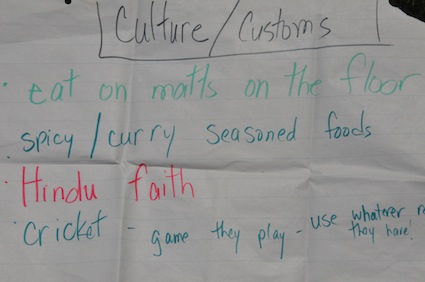 Culture/Customs
· eat on matts on the floor
· spicy/curry seasoned foods
· Hindu faith
· cricket - game they play - use whatever
they have!